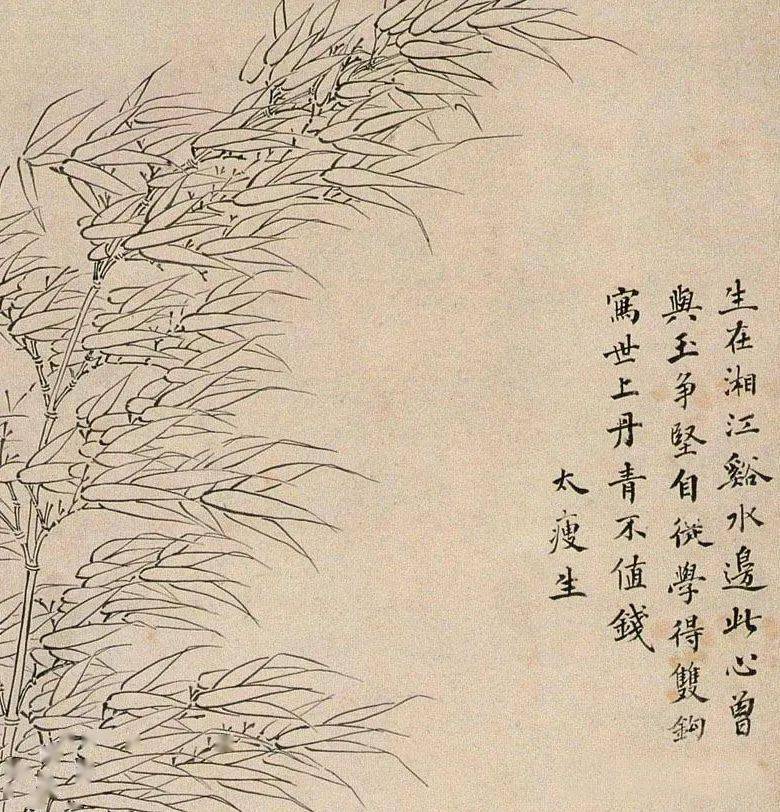 生在湘江谿水邊此心曾
與玉争堅自從學得雙鈎
寫世上丹青不值錢
太瘦生